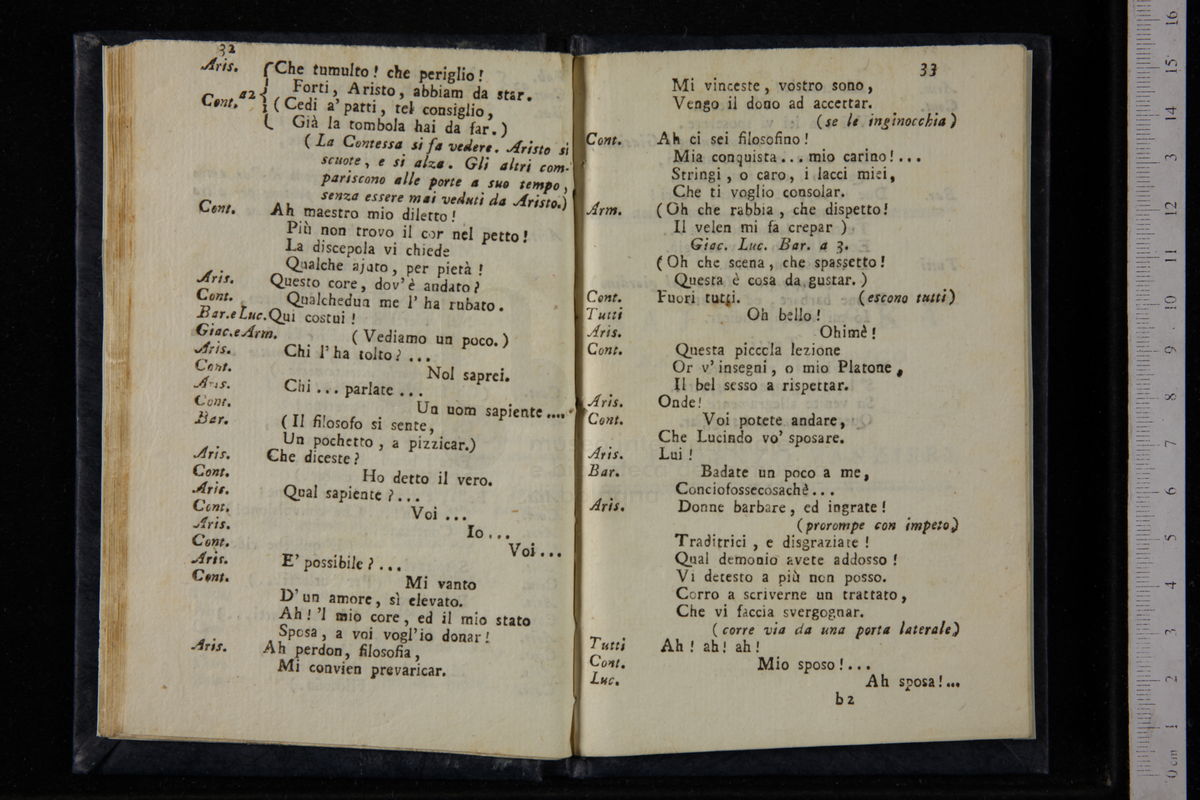 32
Aris. Che tumulto! che periglio!
Forti, Aristo, abbiam da star.
a2
Cont. (Cedi a' patti, tel consiglio,
Già la tombola hai da far.)
(La Contessa si fa vedere. Aristo si
scuote, e si alza. Gli altri com-
pariscono alle porte a suo tempo,
senza essere mai veduti da Aristo.)
Cont. Ah maestro mio diletto!
Più non trovo il cor nel petto!
La discepola vi chiede
Qualche ajuto, per pietà!
Aris. Questo core, dov'è andato?
Cont. Qualchedun me l' ha rubato.
Bar. e Luc. Qui costui!
Giac. e Arm. (Vediamo un poco.)
Aris. Chi l' ha tolto?...
Cont. Nol saprei.
Aris. Chi... parlate...
Cont. Un uom sapiente....
Bar. (Il filosofo si sente,
Un pochetto, a pizzicar.)
Aris. Che diceste?
Cont. Ho detto il vero.
Aris. Qual sapiente?...
Cont. Voi...
Aris. Io...
Cont. Voi...
Aris. E' possibile?...
Cont. Mi vanto
D' un amore, sì elevato.
Ah! 'l mio core, ed il mio stato
Sposa, a voi vogl'io donar!
Aris. Ah perdon, filosofia,
Mi convien prevaricar.
33
Mi vinceste, vostro sono,
Vengo il dono ad accertar.
(se le inginocchia)
Cont. Ah ci sei filosofino!
Mia conquista... mio carino!...
Stringi, o caro, i lacci miei,
Che ti voglio consolar.
Arm. (Oh che rabbia, che dispetto!
Il velen mi fa crepar)
Giac. Luc. Bar. a 3.
(Oh che scena, che spassetto!
Questa è cosa da gustar.)
Cont. Fuori tutti. (escono tutti)
Tutti Oh bello!
Aris. Ohimè!
Cont. Questa piccola lezione
Or v' insegni, o mio Platone,
Il bel sesso a rispettar.
Aris. Onde!
Cont. Voi potete andare,
Che Lucindo vo' sposare.
Aris. Lui!
Bar. Badate un poco a me,
Conciofossecosachè...
Aris. Donne barbare, ed ingrate!
(prorompe con impeto)
Traditrici, e disgraziate!
Qual demonio avete addosso!
Vi detesto a più non posso.
Corro a scriverne un trattato,
Che vi faccia svergognar.
(corre via da una porta laterale)
Tutti Ah! ah! ah!
Cont. Mio sposo!...
Luc. Ah sposa!...
b2
16
15
14
13
12
11
10
9
8
7
6
5
4
3
2
1
0 cm